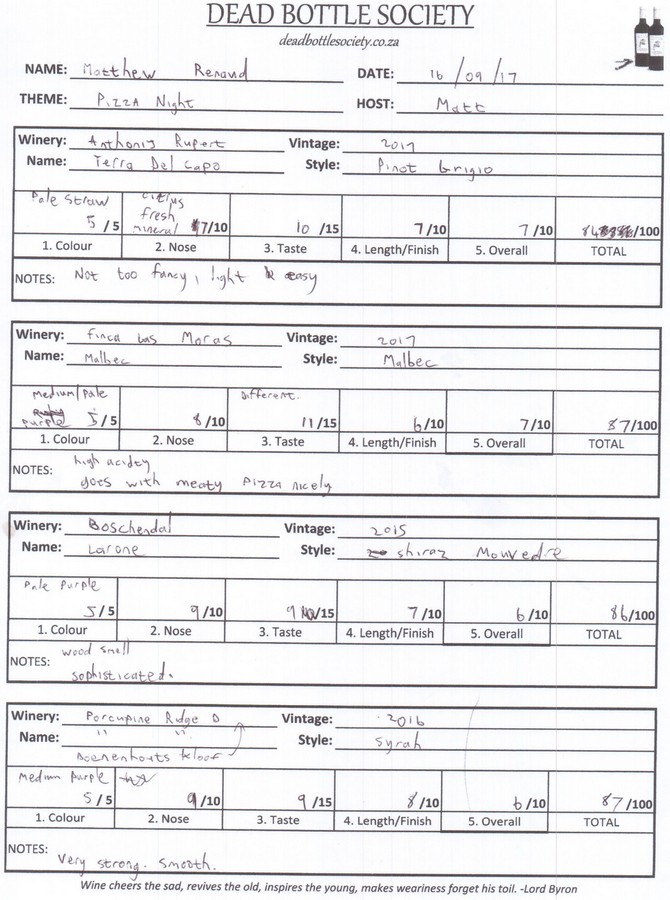 DEAD BOTTLE SOCIETY
deadbottlesociety.co.za
NAME: Matthew Renaud DATE: 16 / 09 / 17
THEME: Pizza Night HOST: Matt
Winery: Anthonij Rupert Vintage: 2017
Name: Terra Del Capo Style: Pinot Grigio
Pale Straw citrus
fresh
5 /5 mineral 7/10 10 /15 7/10 7/10 84 /100
1. Colour 2. Nose 3. Taste 4. Length/Finish 5. Overall TOTAL
NOTES: Not too fancy, light & easy
Winery: Finca Las Moras Vintage: 2017
Name: Malbec Style: Malbec
Medium/Pale Different.
purple 5/5 8/10 11/15 6/10 7/10 87/100
1. Colour 2. Nose 3. Taste 4. Length/Finish 5. Overall TOTAL
NOTES: high acidty
goes with meaty Pizza nicely
Winery: Boschendal Vintage: 2015
Name: Larone Style: shiraz Mouvedre
Pale Purple
5/5 9/10 9 /15 7/10 6/10 86/100
1. Colour 2. Nose 3. Taste 4. Length/Finish 5. Overall TOTAL
NOTES: wood smell
sophisticated.
Winery: Porcupine Ridge Vintage: 2016
Name: " " Style: Syrah
Boenenhouts kloof
Medium Purple
5/5 9/10 9/15 8/10 6/10 87/100
1. Colour 2. Nose 3. Taste 4. Length/Finish 5. Overall TOTAL
NOTES:
Very strong. Smooth.
Wine cheers the sad, revives the old, inspires the young, makes weariness forget his toil. -Lord Byron